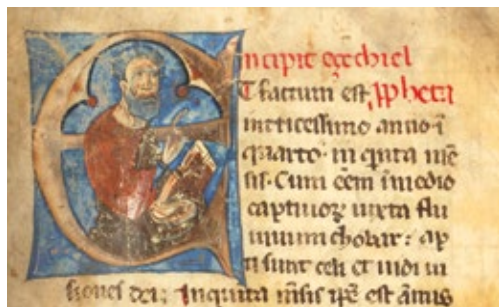 incipit ezechiel
T factum est ꝓpheta
in tricesimo anno ī
quarto· in quita mē
sis· Cum eēm ī medio
captiuoꝝ iuxta flu
uium chobar: ap
ti sunt celi et uidi ui
siones dei; In quita mēsis ipē est annus